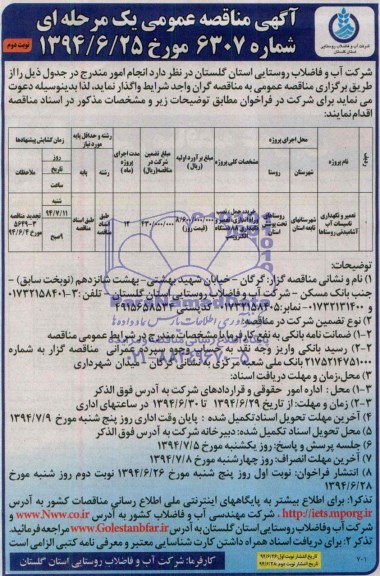 آگهی مناقصه عمومی یک مرحله ای
شماره ۶۳۰۷ مورخ ۱۳۹۴/۶/۲۵
نوبت دوم
شرکت آب و فاضلاب روستایی استان گلستان
شرکت آب و فاضلاب روستایی استان گلستان در نظر دارد انجام امور مندرج در جدول ذیل را از
طریق برگزاری مناقصه عمومی به مناقصه گران واجد شرایط واگذار نماید، لذا بدینوسیله دعوت
می نماید برای شرکت در فراخوان مطابق توضیحات زیر و مشخصات مذکور در اسناد مناقصه
اقدام نمایند:
نام پروژه
محل اجرای پروژه
شهرستان
روستا
مشخصات کلی پروژه
مبلغ برآورد اولیه (ریال)
مبلغ تضمین شرکت در مناقصه (ریال)
مدت اجرای پروژه (ماه)
رشته و حداقل پایه مورد نیاز
رشته
پایه
زمان گشایش پیشنهادها
روز
تاریخ
ساعت
ملاحظات
تعمیر و نگهداری تاسیسات آب آشامیدنی روستاها
شهرستانهای تابعه استان
روستاهای تحت پوشش استان
۸/۶۰۰/۰۰۰/۰۰۰ (قیمت روز)
۴۳۰/۰۰۰/۰۰۰
۱۲
طبق اسناد
طبق اسناد
شنبه
۹۴/۷/۱۱
۹ صبح
توضیحات:
۱) نام و نشانی مناقصه گزار: گرگان - خیابان شهید بهشتی - بهشت شانزدهم (نوبخت سابق) -
جنب بانک مسکن - شرکت آب و فاضلاب روستایی استان گلستان - تلفن: ۳-۰۱۷۳۲۱۵۸۴۰۱
۲) نوع تضمین شرکت در مناقصه:
۱-۲) ضمانت نامه بانکی به نفع کارفرما با مشخصات مندرج در شرایط عمومی مناقصه
۲-۲) رسید بانکی واریز وجه نقد به حساب وجوه سپرده عمرانی مناقصه گزار به شماره
۲۱۷۵۲۱۴۷۵۱۰۰۰ بانک ملی شعبه مرکزی به نشانی گرگان - میدان شهرداری
۳) محل، زمان و مهلت دریافت اسناد:
۱-۳) محل: اداره امور حقوقی و قراردادهای شرکت به آدرس فوق الذکر
۲-۳) زمان و مهلت: از تاریخ ۱۳۹۴/۶/۲۹ تا ۱۳۹۴/۶/۳۰ در ساعتهای اداری
۴) آخرین مهلت تحویل اسناد تکمیل شده: پایان وقت اداری روز پنج شنبه مورخ ۱۳۹۴/۷/۹
۵) محل تحویل اسناد تکمیل شده: دبیرخانه شرکت به آدرس فوق الذکر
۶) جلسه پرسش و پاسخ: روز یکشنبه مورخ ۱۳۹۴/۷/۵
۷) آخرین مهلت انصراف: روز چهارشنبه مورخ ۱۳۹۴/۷/۸
۸) انتشار فراخوان: نوبت اول روز پنج شنبه مورخ ۱۳۹۴/۶/۲۶ نوبت دوم روز شنبه مورخ
۱۳۹۴/۶/۲۸
تذکر۱: برای اطلاع بیشتر به پایگاههای اینترنتی ملی اطلاع رسانی مناقصات کشور به آدرس
http://iets.mporg.ir ، شرکت مهندسی آب و فاضلاب کشور به آدرس www.Nww.co.ir و
شرکت آب وفاضلاب روستایی استان گلستان به آدرس www.Golestanbfar.ir مراجعه فرمائید.
تذکر ۲: برای دریافت اسناد همراه داشتن کارت شناسایی معتبر و معرفی نامه کتبی الزامی است
کارفرما: شرکت آب و فاضلاب روستایی استان گلستان
تاریخ انتشار نوبت اول: ۹۴/۶/۲۶
تاریخ انتشار نوبت دوم: ۹۴/۶/۲۸
۷۰۱